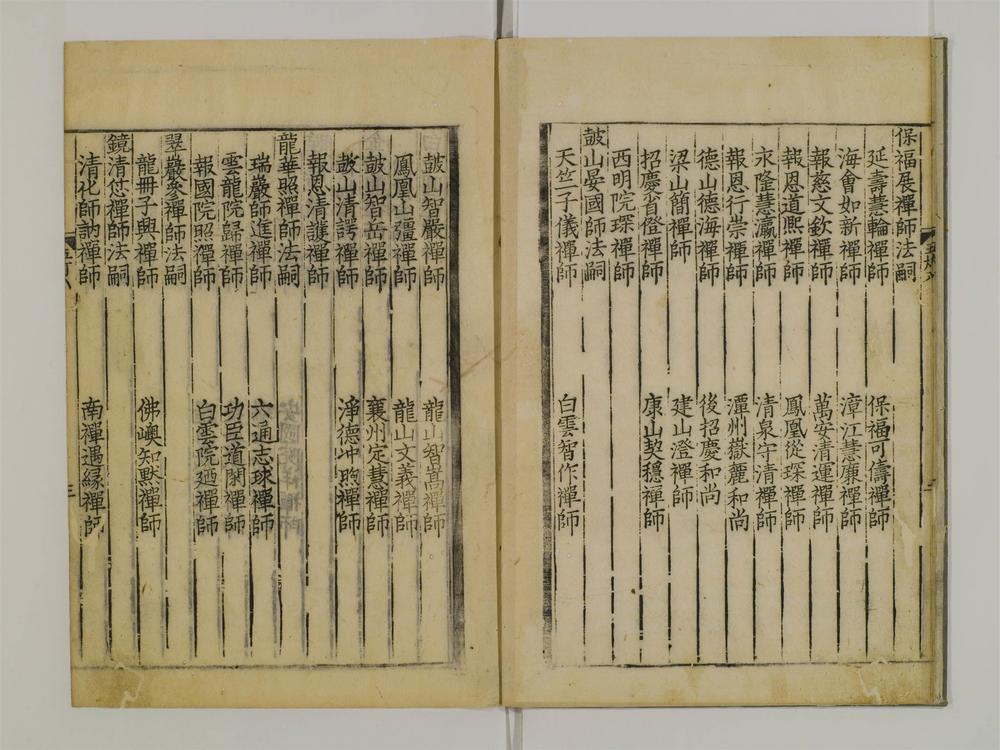 保福展禪師法嗣
延壽慧輪禪師　保福可儔禪師
海會如新禪師　漳江慧廉禪師
報慈文欽禪師　萬安清運禪師
報恩道熈禪師　鳳凰從琛禪師
永隆慧瀛禪師　清泉守清禪師
報恩行崇禪師　潭州嶽麓和尚
德山德海禪師　後招慶和尚
梁山簡禪師　建山澄禪師
招慶省僜禪師　康山契穩禪師
西明院琛禪師
皷山晏國師法嗣
天竺子儀禪師　白雲智作禪師
皷山智嚴禪師　龍山智嵩禪師
鳳凰山彊禪師　龍山文義禪師
皷山智岳禪師　襄州定慧禪師
皷山清諤禪師　淨德冲煦禪師
報恩清護禪師
龍華照禪師法嗣
瑞巖師進禪師　六通志球禪師
雲龍院歸禪師　功臣道閑禪師
報國院照禪師　白雲院廼禪師
翠巖參禪師法嗣
龍冊子興禪師　佛嶼知默禪師
鏡清怤禪師法嗣
清化師訥禪師　南禪遇縁禪師